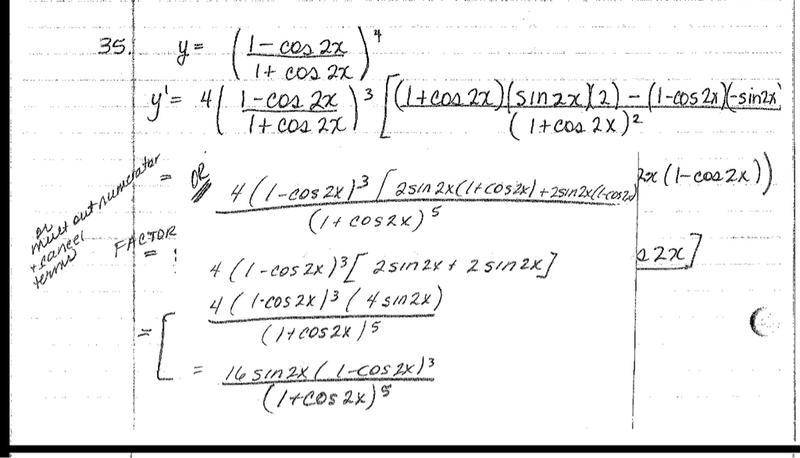 35. y = (1-cos 2x / 1+ cos 2x)^4
y' = 4(1-cos 2x / 1+cos 2x)^3 [(1+cos 2x)(sin 2x)(2) - (1-cos 2x)(-sin2x) / (1+cos 2x)^2
or mult out numerator + cancel terms
= OR 4(1-cos 2x)^3 [2sin2x(1+cos2x)+2sin2x(1-cos2x) / (1+cos2x)^5
2x(1-cos2x))
FACTOR = : 4(1-cos2x)^3 [2sin2x + 2sin2x]
2x]
= [ 4(1-cos2x)^3 (4sin2x) / (1+cos2x)^5
= 16sin2x(1-cos2x)^3 / (1+cos2x)^5